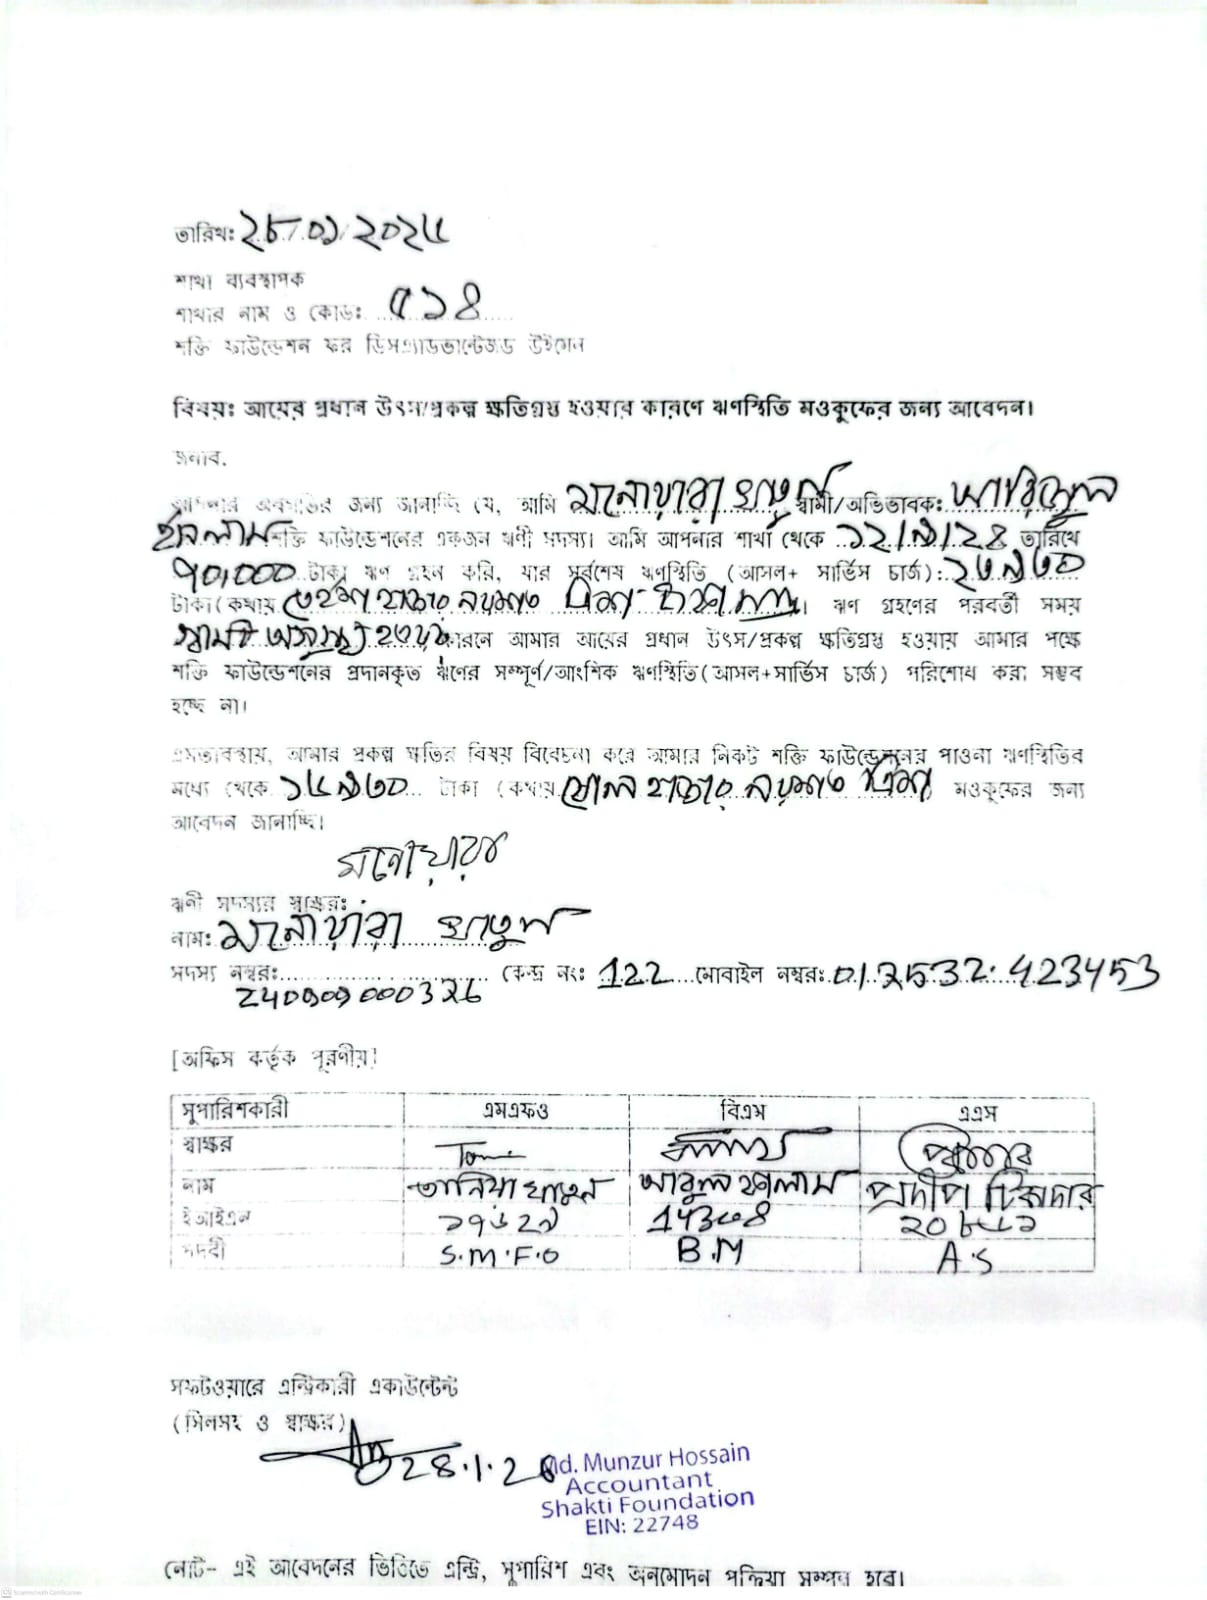 তারিখ: ২৮/০১/২০২৬
শাখা ব্যবস্থাপক
শাখার নাম ও কোড: ৫১৪
শক্তি ফাউন্ডেশন ফর ডিসএ্যাডভান্টেজড উইমেন
বিষয়ঃ আয়ের প্রধান উৎস/প্রকল্প ক্ষতিগ্রস্ত হওয়ার কারণে ঋণস্থিতি মওকুফের জন্য আবেদন।
জনাব,
আপনার অবগতির জন্য জানাচ্ছি যে, আমি মনোয়ারা খাতুন স্বামী/অভিভাবক: আরিফুল
ইসলাম শক্তি ফাউন্ডেশনের একজন ঋণী সদস্য। আমি আপনার শাখা থেকে ১২/৯/২৪ তারিখে
৭০,০০০ টাকা ঋণ গ্রহন করি, যার সর্বশেষ ঋণস্থিতি (আসল+ সার্ভিস চার্জ): ২৩৯৩০
টাকা (কথায় তেইশ হাজার নয়শত ত্রিশ টাকা মাত্র। ঋণ গ্রহণের পরবর্তী সময়
স্বামী অসুস্থ্য হওয়ার কারনে আমার আয়ের প্রধান উৎস/প্রকল্প ক্ষতিগ্রস্ত হওয়ায় আমার পক্ষে
শক্তি ফাউন্ডেশনের প্রদানকৃত ঋণের সম্পূর্ণ/আংশিক ঋণস্থিতি(আসল+সার্ভিস চার্জ) পরিশোধ করা সম্ভব
হচ্ছে না।
এমতাবস্থায়, আমার প্রকল্প ক্ষতির বিষয় বিবেচনা করে আমার নিকট শক্তি ফাউন্ডেশনের পাওনা ঋণস্থিতির
মধ্যে থেকে ১৬৯৩০ টাকা (কথায় ষোল হাজার নয়শত ত্রিশ মওকুফের জন্য
আবেদন জানাচ্ছি।
মনোয়ারা
ঋণী সদস্যর স্বাক্ষর:
নাম: মনোয়ারা খাতুন
সদস্য নম্বর: কেন্দ্র নং: 122 মোবাইল নম্বর: 01.3532.423453
[অফিস কর্তৃক পূরণীয়]
সুপারিশকারী এমএফও বিএম এএস
স্বাক্ষর
নাম তানিয়া খাতুন আবুল কালাম প্রদীপ টিকাদার
ইআইএন
পদবী S.M.F.O B.M A.S
সফটওয়ারে এন্ট্রিকারী একাউন্টেন্ট
(সিলসহ ও স্বাক্ষর)
28.1.26
Md. Munzur Hossain
Accountant
Shakti Foundation
EIN: 22748
নোট- এই আবেদনের ভিত্তিতে এন্ট্রি, সুপারিশ এবং অনুমোদন প্রক্রিয়া সম্পন্ন হবে।